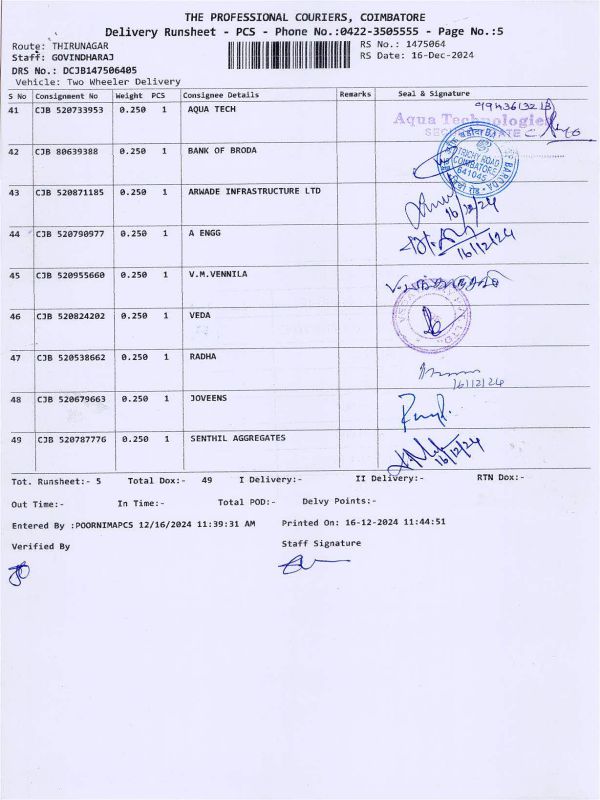 THE PROFESSIONAL COURIERS, COIMBATORE
Delivery Runsheet - PCS - Phone No.:0422-3505555 - Page No.:5
Route: THIRUNAGAR RS No.: 1475064
Staff: GOVINDHARAJ RS Date: 16-Dec-2024
DRS No.: DCJB147506405
Vehicle: Two Wheeler Delivery
S No Consignment No Weight PCS Consignee Details Remarks Seal & Signature
41 CJB 520733953 0.250 1 AQUA TECH
Aqua Technologies
42 CJB 80639388 0.250 1 BANK OF BRODA
TRICHY ROAD
COIMBATORE
641045
43 CJB 520871185 0.250 1 ARWADE INFRASTRUCTURE LTD
16/12/24
44 CJB 520790977 0.250 1 A ENGG
16/12/24
45 CJB 520955660 0.250 1 V.M.VENNILA
46 CJB 520824202 0.250 1 VEDA
47 CJB 520538662 0.250 1 RADHA
16/12/24
48 CJB 520679663 0.250 1 JOVEENS
49 CJB 520787776 0.250 1 SENTHIL AGGREGATES
16/12/24
Tot. Runsheet:- 5 Total Dox:- 49 I Delivery:- II Delivery:- RTN Dox:-
Out Time:- In Time:- Total POD:- Delvy Points:-
Entered By :POORNIMAPCS 12/16/2024 11:39:31 AM Printed On: 16-12-2024 11:44:51
Verified By Staff Signature